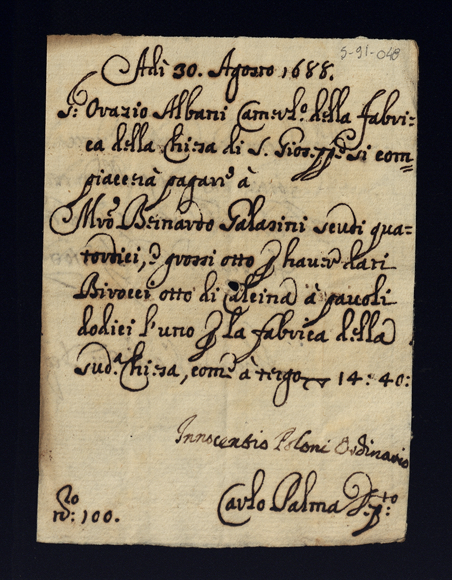 5-91-048
Adi 30. Agosto 1688.
Sr. Orazio Albani Camerlo. della fabri=
ca della Chiesa di S. Gioseppe si com=
piacerà pagare à
Mro. Bernardo Galasini scudi qua=
tordici, e grossi otto p hauer dati
Birocci otto di Calcina à pauoli
dodici l'uno p la fabrica della
suda. Chiesa, come à tergo 14:40:
Innocentio Poloni Ordinario
Carlo Palma
No: 100.